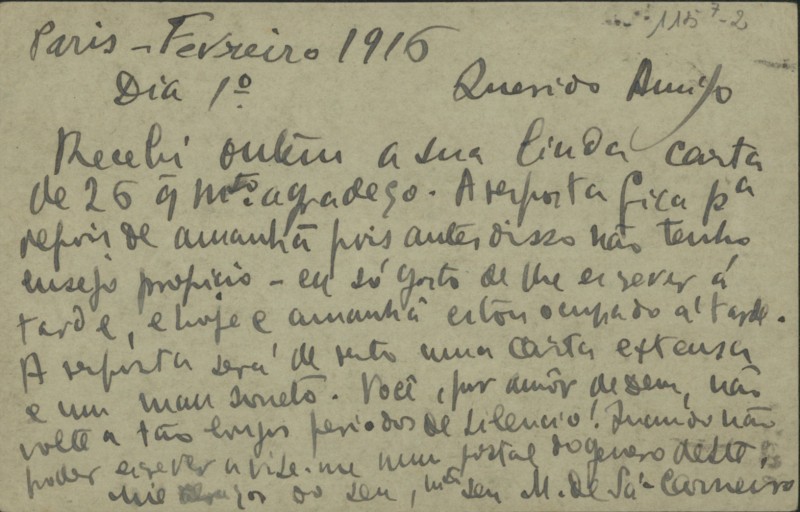 115 7-2
Paris - Fevreiro 1916
Dia 1º
Querido Amigo
Recebi ontem a sua linda carta
de 26 q̃ mto. agradeço. A resposta fica pa
depois de amanhã pois antes disso não tenho
ensejo propicio - eu só gosto de lhe escrever á
tarde, e hoje e amanhã estou ocupado á tarde.
A resposta será de resto uma carta extensa
e um mau soneto. Você, por amôr de Deus, não
volte a tão longos periodos de silencio! Quando não
poder escrever avise-me num postal do genero deste.
Mil abraços do seu, mto seu M. de Sá-Carneiro